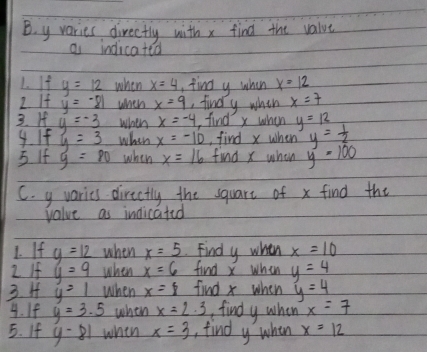 B. y varies directly with x find the value
as indicated
1. If y = 12 when x = 4, find y when x = 12
2. If y = -21 when x = 9, find y when x = 7
3. If y = -3 when x = -4, find x when y = 12
4. If y = 3 when x = -10, find x when y = 1/2
5. If y = 80 when x = 16 find x when y = 100
C. y varies directly the square of x find the
value as indicated
1. If y = 12 when x = 5. Find y when x = 10
2 If y = 9 when x = 6 find x when y = 4
3 If y = 1 when x = 8 find x when y = 4
4. If y = 3.5 when x = 2.3, find y when x = 7
5. If y = 81 when x = 3, find y when x = 12